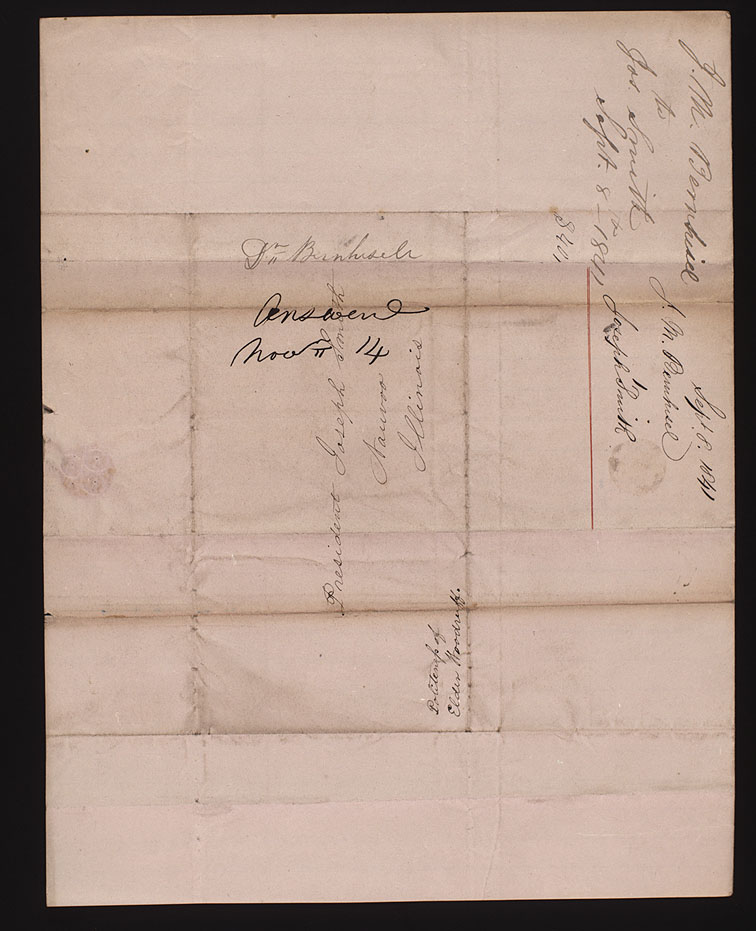 J. M. Bernhisel
to
Jos. Smith
Sept. 8th 1841
Sept. 8. 1841
J. M. Bernhisel
Joseph Smith
Dr Bernhisels
Answered
Nov 14
President Joseph Smith
Nauvoo
Illinois
Politeness of
Elder Woodruff.